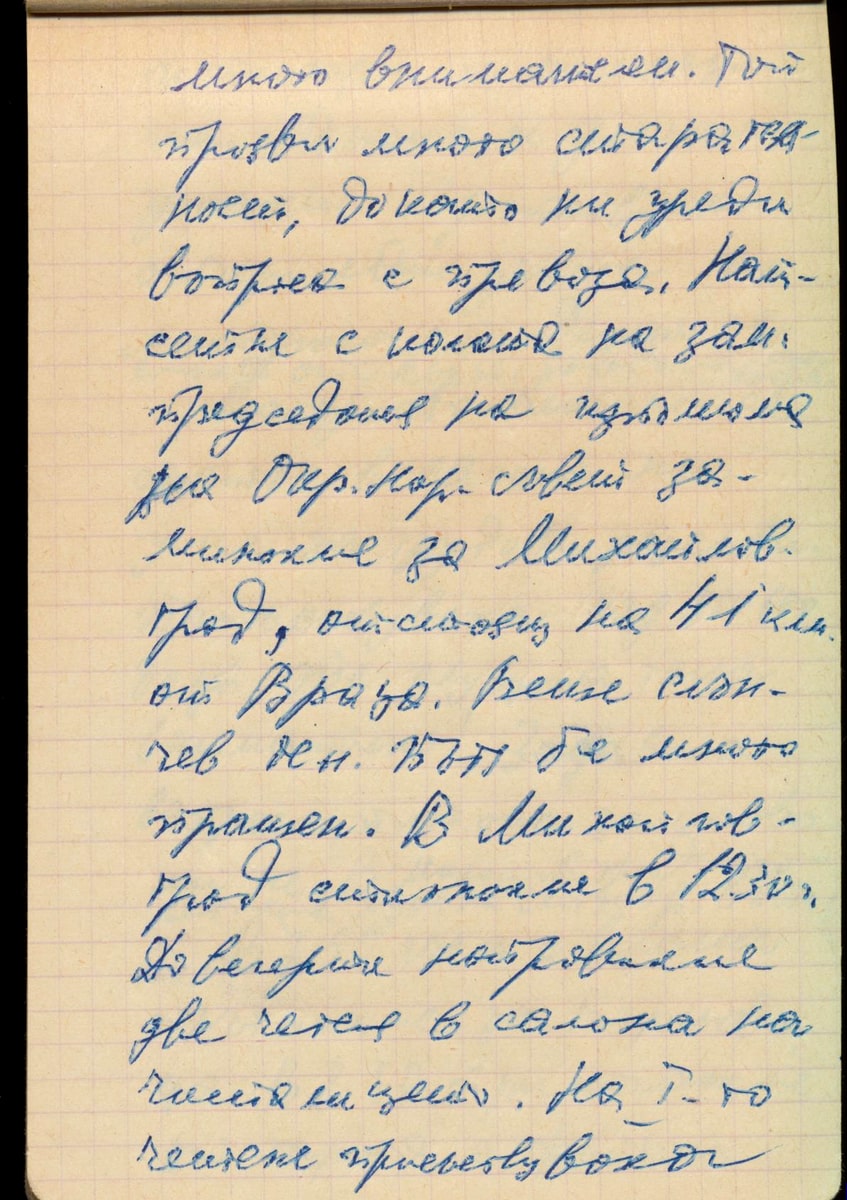 много внимателен. Той
прояви много старател-
ност, докато ни уреди
въпроса с превоза. Най-
сетне с колата на зам.
председателя на изпълкома
на Окр. нар. съвет за-
минахме за Михайлов-
град, отстоящ на 41 км.
от Враца. Беше слън-
чев ден. Пътят бе много
прашен. В Михайлов-
град стигнахме в 12.30 ч.
До вечерта направихме
две четения в салона на
читалището. На I-то
четене присъствуваха